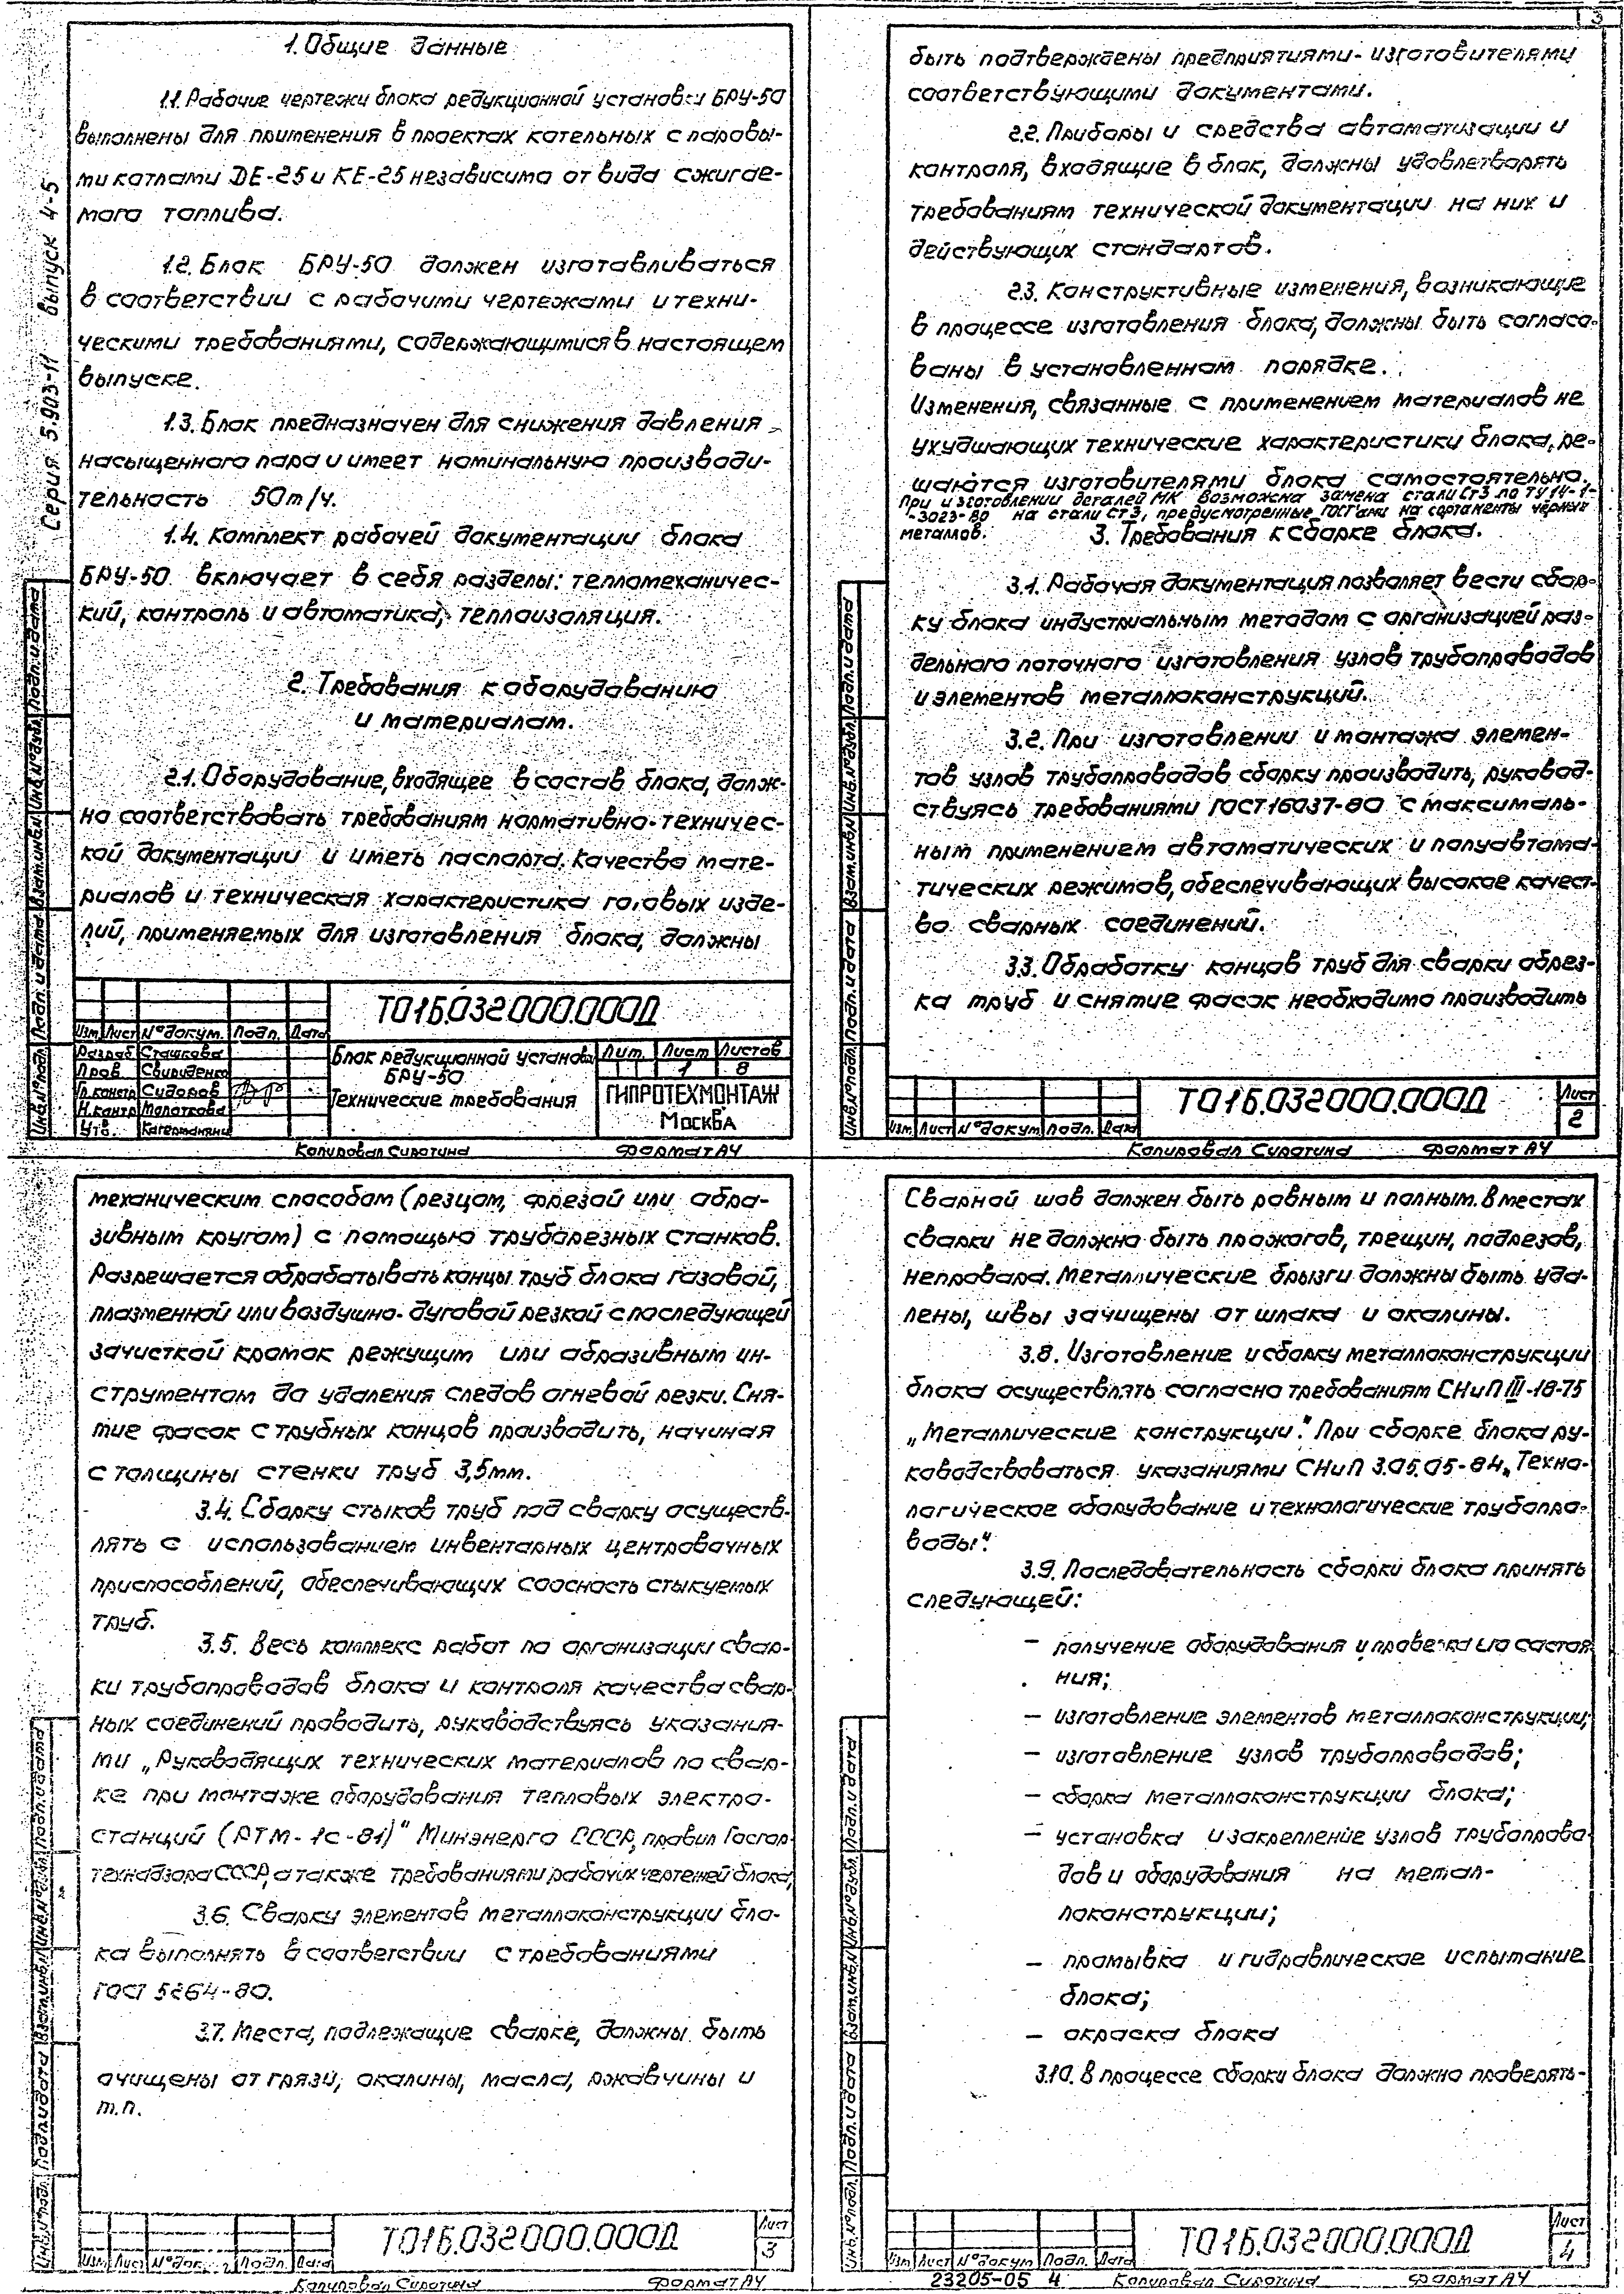 3
Серия 5.903-11 выпуск 4-5
1. Общие данные
1.1. Рабочие чертежи блока редукционной установки БРУ-50
выполнены для применения в проектах котельных с паровы-
ми котлами DE-25 и КЕ-25 независимо от вида сжигае-
мого топлива.
1.2. Блок БРУ-50 должен изготавливаться
в соответствии с рабочими чертежами и техни-
ческими требованиями, содержающимися в настоящем
выпуске.
1.3. Блок предназначен для снижения давления
насыщенного пара и имеет номинальную производи-
тельность 50т/ч.
1.4. Комплект рабочей документации блока
БРУ-50 включает в себя разделы: тепломеханичес-
кий, контроль и автоматика, теплоизоляция.
2. Требования к оборудованию
и материалам.
2.1. Оборудование, входящее в состав блока, долж-
но соответствовать требованиям нормативно-техничес-
кой документации и иметь паспорта. Качество мате-
риалов и техническая характеристика готовых изде-
лий, применяемых для изготовления блока, должны
Т01Б.032000.000Д
Изм. Лист № докум. Подп. Дата
Разраб. Сташкова
Пров. Свириденко
Гл.констр Сидоров
Н.контр Молоткова
Утв.
Блок редукционной установки
БРУ-50
Технические требования
Лит. Лист Листов
1 8
ГИПРОТЕХМОНТАЖ
Москва
Инв.№ подл. Подп. и дата Взам.инв.№ Инв.№ дубл. Подп. и дата
Копировал Сиротина Формат А4
быть подтверждены предприятиями-изготовителями
соответствующими документами.
2.2. Приборы и средства автоматизации и
контроля, входящие в блок, должны удовлетворять
требованиям технической документации на них и
действующих стандартов.
2.3. Конструктивные изменения, возникающие
в процессе изготовления блока, должны быть согласо-
ваны в установленном порядке.
Изменения, связанные с применением материалов не
ухудшающих технические характеристики блока, ре-
шаются изготовителями блока самостоятельно.
При изготовлении деталей МК возможна замена стали Ст3 по ТУ 14-1-
-3023-80 на стали Ст3, предусмотренные ГОСТами на сортаменты черных
металлов.
3. Требования к сборке блока.
3.1. Рабочая документация позволяет вести сбор-
ку блока индустриальным методом с организацией раз-
дельного поточного изготовления узлов трубопроводов
и элементов металлоконструкций.
3.2. При изготовлении и монтажа элемен-
тов узлов трубопроводов сборку производить, руковод-
ствуясь требованиями ГОСТ 16037-80 с максималь-
ным применением автоматических и полуавтома-
тических режимов, обеспечивающих высокое качест-
во сварных соединений.
3.3. Обработку концов труб для сварки обрез-
ка труб и снятие фасок необходимо производить
Т01Б.032000.000Д
Изм. Лист № докум. Подп. Дата
Лист
2
Инв.№ подл. Подп. и дата Взам.инв.№ Инв.№ дубл. Подп. и дата
Копировал Сиротина Формат А4
механическим способом (резцом, фрезой или абра-
зивным кругом) с помощью труборезных станков.
Разрешается обрабатывать концы труб блока газовой,
плазменной или воздушно-дуговой резкой с последующей
зачисткой кромок режущим или абразивным ин-
струментом до удаления следов огневой резки. Сня-
тие фасок с трубных концов производить, начиная
с толщины стенки труб 3,5мм.
3.4. Сборку стыков труб под сварку осуществ-
лять с использованием инвентарных центровочных
приспособлений, обеспечивающих соосность стыкуемых
труб.
3.5. Весь комплекс работ по организации свар-
ки трубопроводов блока и контроля качества свар-
ных соединений проводить, руководствуясь указания-
ми „Руководящих технических материалов по свар-
ке при монтаже оборудования тепловых электро-
станций (РТМ-1с-81)" Минэнерго СССР, правил Госгор-
технадзора СССР, а также требованиями рабочих чертежей блока,
3.6. Сварку элементов металлоконструкции бло-
ка выполнять в соответствии с требованиями
ГОСТ 5264-80.
3.7. Места, подлежащие сварке, должны быть
очищены от грязи, окалины, масла, ржавчины и
т.п.
Т01Б.032000.000Д
Изм. Лист № док. Подп. Дата
Лист
3
Инв.№ подл. Подп. и дата Взам.инв.№ Инв.№ дубл. Подп. и дата
Копировал Сиротина Формат А4
Сварной шов должен быть ровным и полным. В местах
сварки не должно быть прожогов, трещин, подрезов,
непровара. Металлические брызги должны быть уда-
лены, швы зачищены от шлака и окалины.
3.8. Изготовление и сборку металлоконструкции
блока осуществлять согласно требованиям СНиП III-18-75
„Металлические конструкции". При сборке блока ру-
ководствоваться указаниями СНиП 3.05.05-84 „Техно-
логическое оборудование и технологические трубопро-
воды".
3.9. Последовательность сборки блока принять
следующей:
– получение оборудования и проверка его состоя-
ния;
– изготовление элементов металлоконструкции;
– изготовление узлов трубопроводов;
– сборка металлоконструкции блока;
– установка и закрепление узлов трубопрово-
дов и оборудования на метал-
локонструкции;
– промывка и гидравлическое испытание
блока;
– окраска блока
3.10. В процессе сборки блока должно проверять-
Т01Б.032000.000Д
Изм Лист № докум Подп. Дата
Лист
4
Инв.№ подл. Подп. и дата Взам.инв.№ Инв.№ дубл. Подп. и дата
23205-05 4 Копировал Сиротина Формат А4